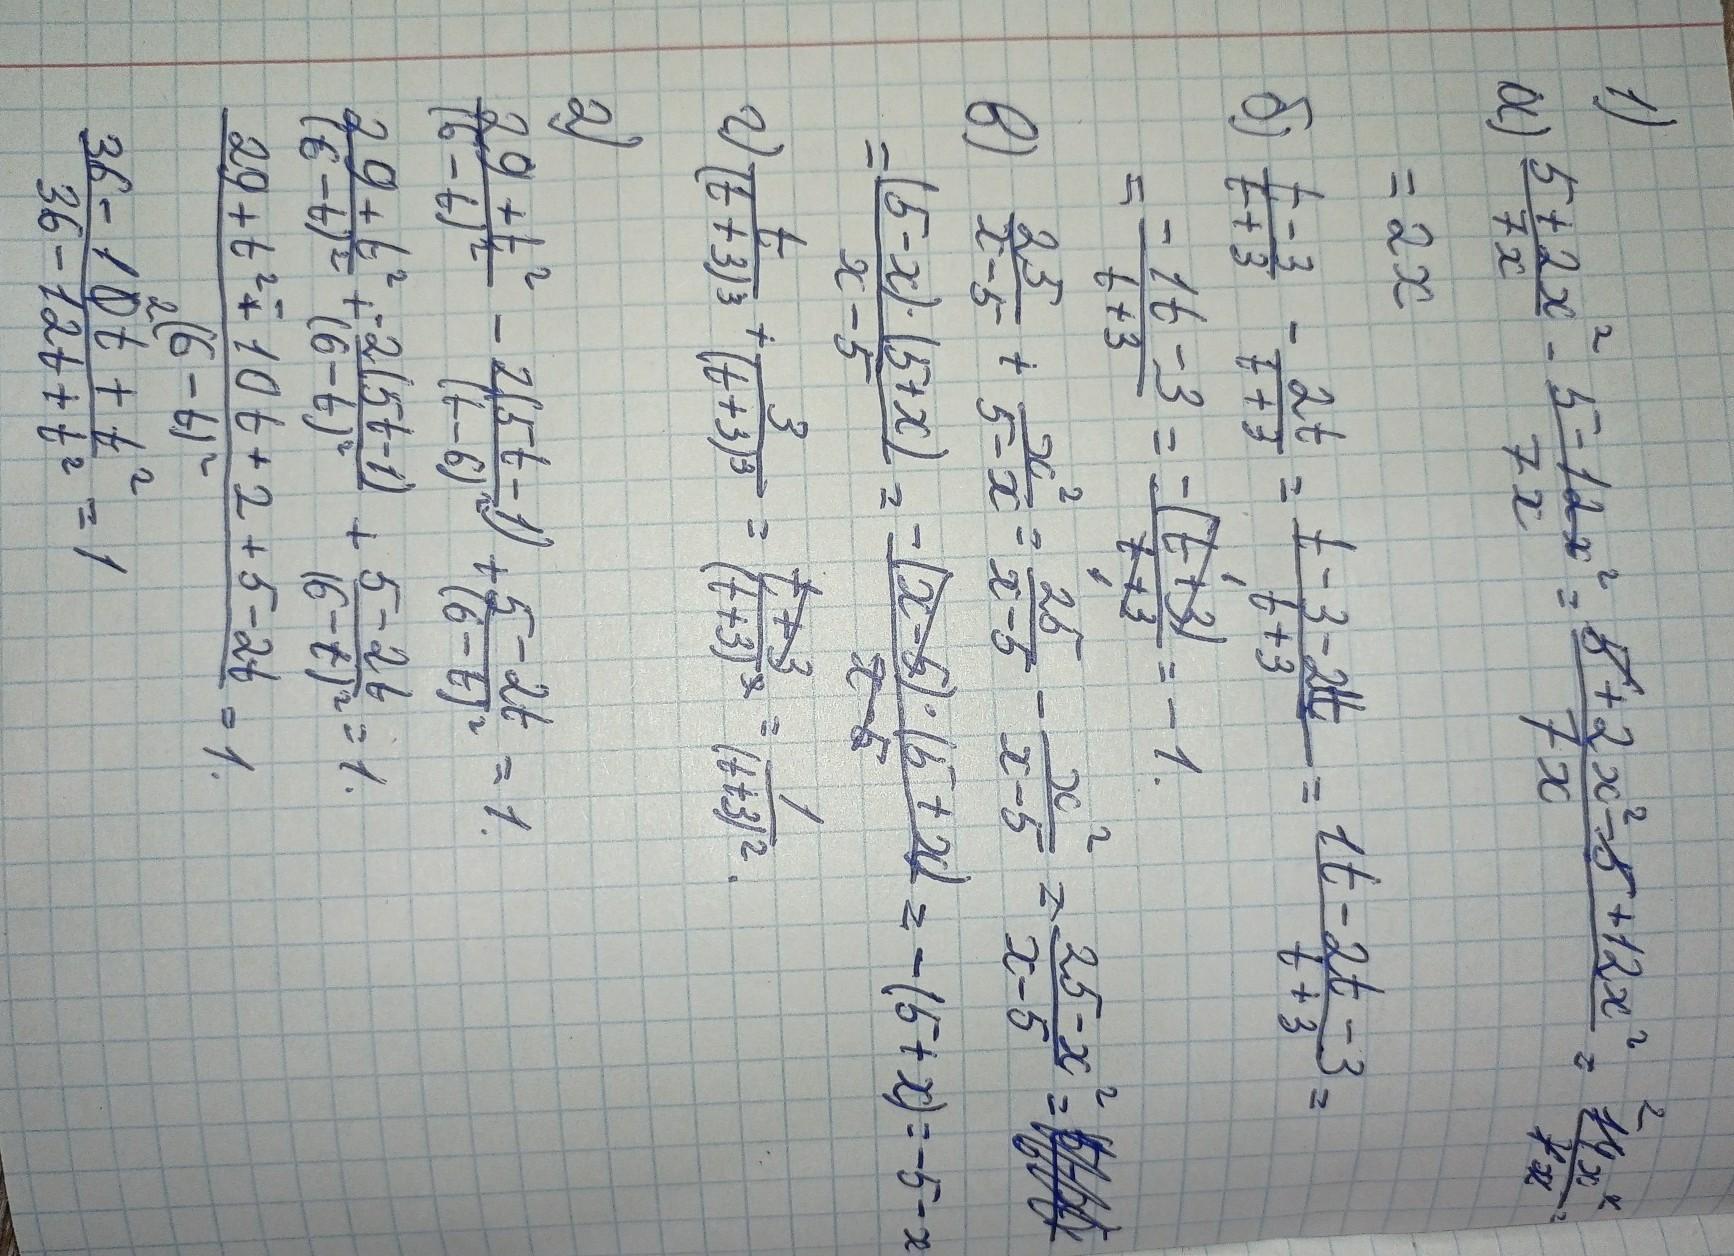 1)
а) (5+2x²)/(7x) - (5-12x²)/(7x) = (5+2x²-5+12x²)/(7x) = (14x²)/(7x) =
= 2x
б) (t-3)/(t+3) - (2t)/(t+3) = (t-3-2t)/(t+3) = (1t-2t-3)/(t+3) =
= (-1t-3)/(t+3) = (-(t+3))/(t+3) = -1.
в) 25/(x-5) + x²/(5-x) = 25/(x-5) - x²/(x-5) = (25-x²)/(x-5) =
= ((5-x)·(5+x))/(x-5) = (-(x-5)·(5+x))/(x-5) = -(5+x) = -5-x
г) t/(t+3)³ + 3/(t+3)³ = (t+3)/(t+3)³ = 1/(t+3)².
2)
(29+t²)/(6-t)² - (2(5t-1))/(t-6)² + (5-2t)/(6-t)² = 1.
(29+t²)/(6-t)² + (-2(5t-1))/(6-t)² + (5-2t)/(6-t)² = 1.
(29+t²-10t+2+5-2t)/(6-t)² = 1.
(36-10t+t²)/(36-12t+t²) = 1